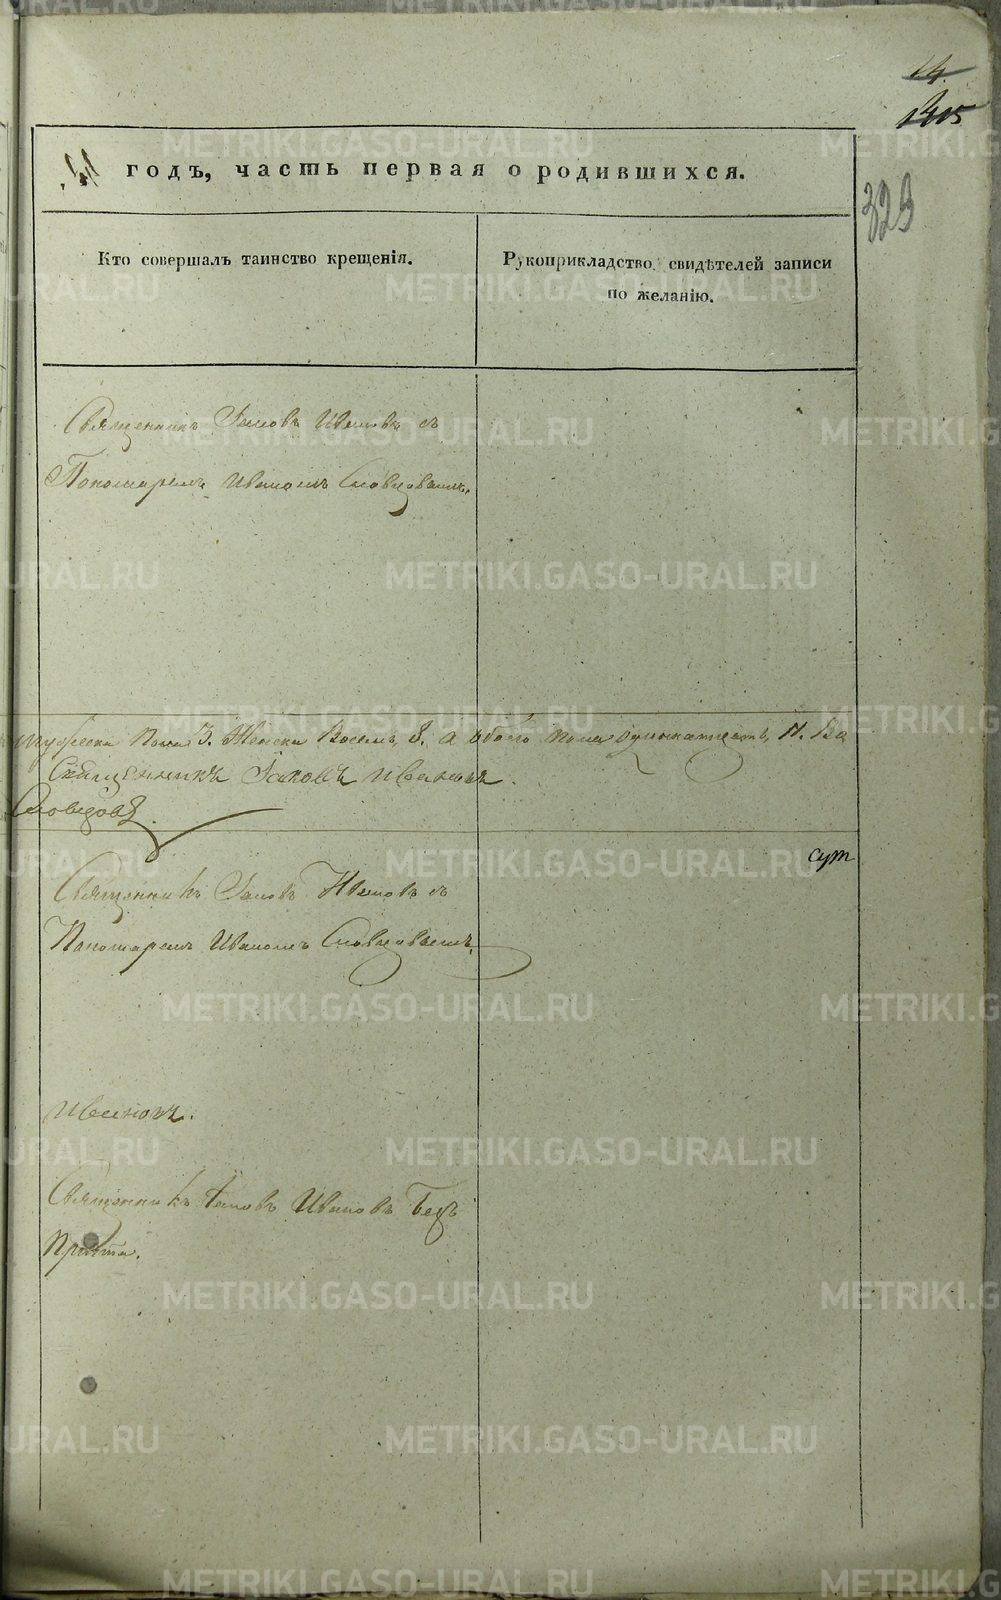 14.
1305
323
41. годъ, часть первая о родившихся.
Кто совершалъ таинство крещенія.
Рукоприкладство свидѣтелей записи
по желанію.
Священникъ Іаковъ Ивановъ съ
Пономаремъ Иваномъ Словцовымъ.
мужеска пола 3. Женска Восемь, 8. а обоего пола одинатцать, 11. Ва
Священникъ Іаковъ Ивановъ.
Словцовъ.
сут
Священникъ Іаковъ Ивановъ съ
Пономаремъ Иваномъ Словцовымъ.
Ивановъ.
Священникъ Іаковъ Ивановъ Безъ
Причта.
METRIKI.GASO-URAL.RU